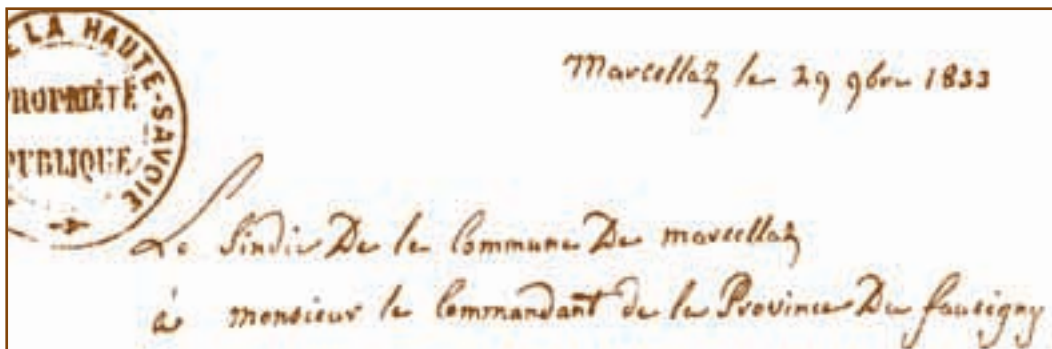 E LA HAUTE-SAVOIE
PROPRIÉTÉ
PUBLIQUE
Marcellaz le 29 9bre 1833
Le Sindic De la Commune De marcellaz
à monsieur le Commandant de la Province Du faucigny